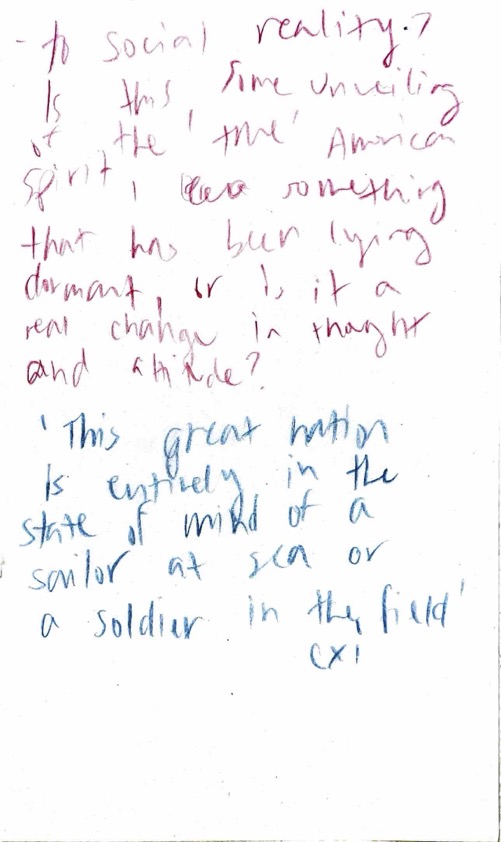 - to social reality.?
Is this, some unveiling
of the 'true' American
spirit, something
that has been lying
dormant, or is it a
real change in thought
and attitude?
'This great nation
is entirely in the
state of mind of a
sailor at sea or
a soldier in the field'
CXI